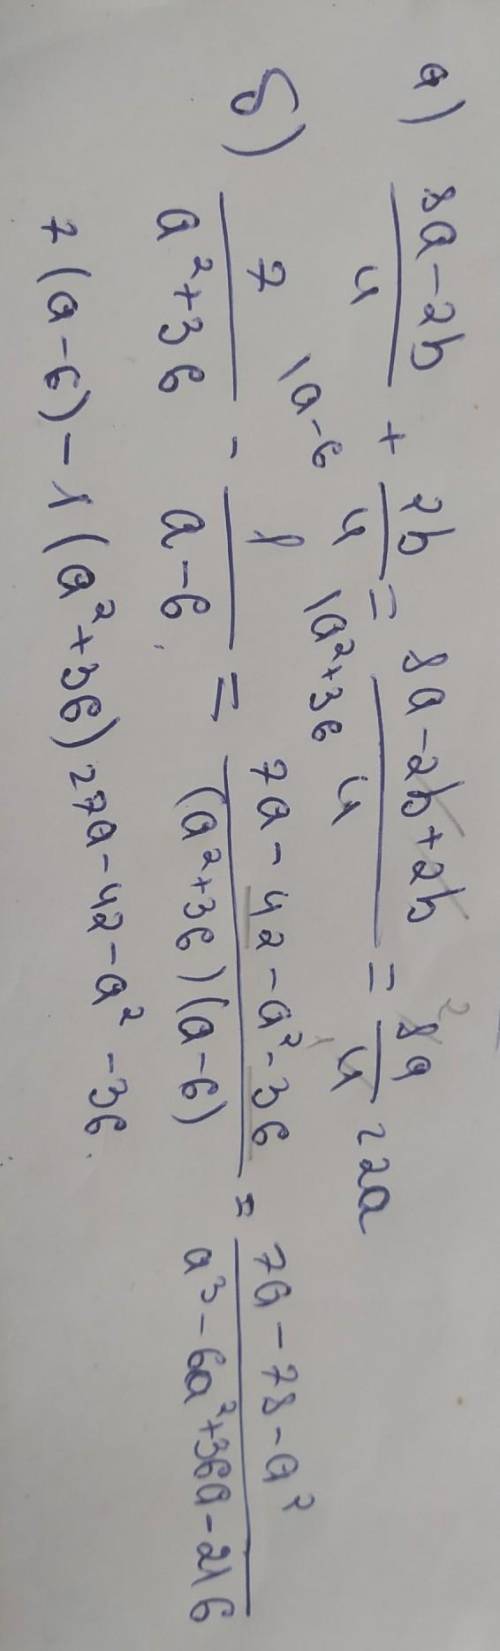 а) (8a-2b)/4 + 2b/4 = (8a-2b+2b)/4 = 8a/4 = 2a
б) 7/(a²+36) \a-6 - 1/(a-6) \a²+36 = (7a-42-a²-36)/((a²+36)(a-6)) = (7a-78-a²)/(a³-6a²+36a-216)
7(a-6)-1(a²+36)=7a-42-a²-36.